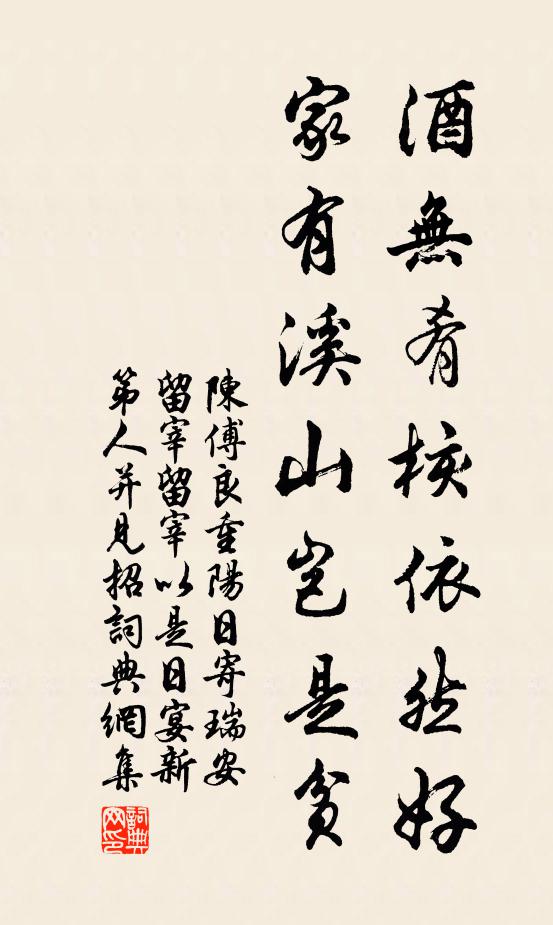 酒無肴核依然好
家有溪山豈是貧
陳傅良重陽日寄瑞安
留宰留宰以是日宴新
第人并見招詞典網集
詞典網印